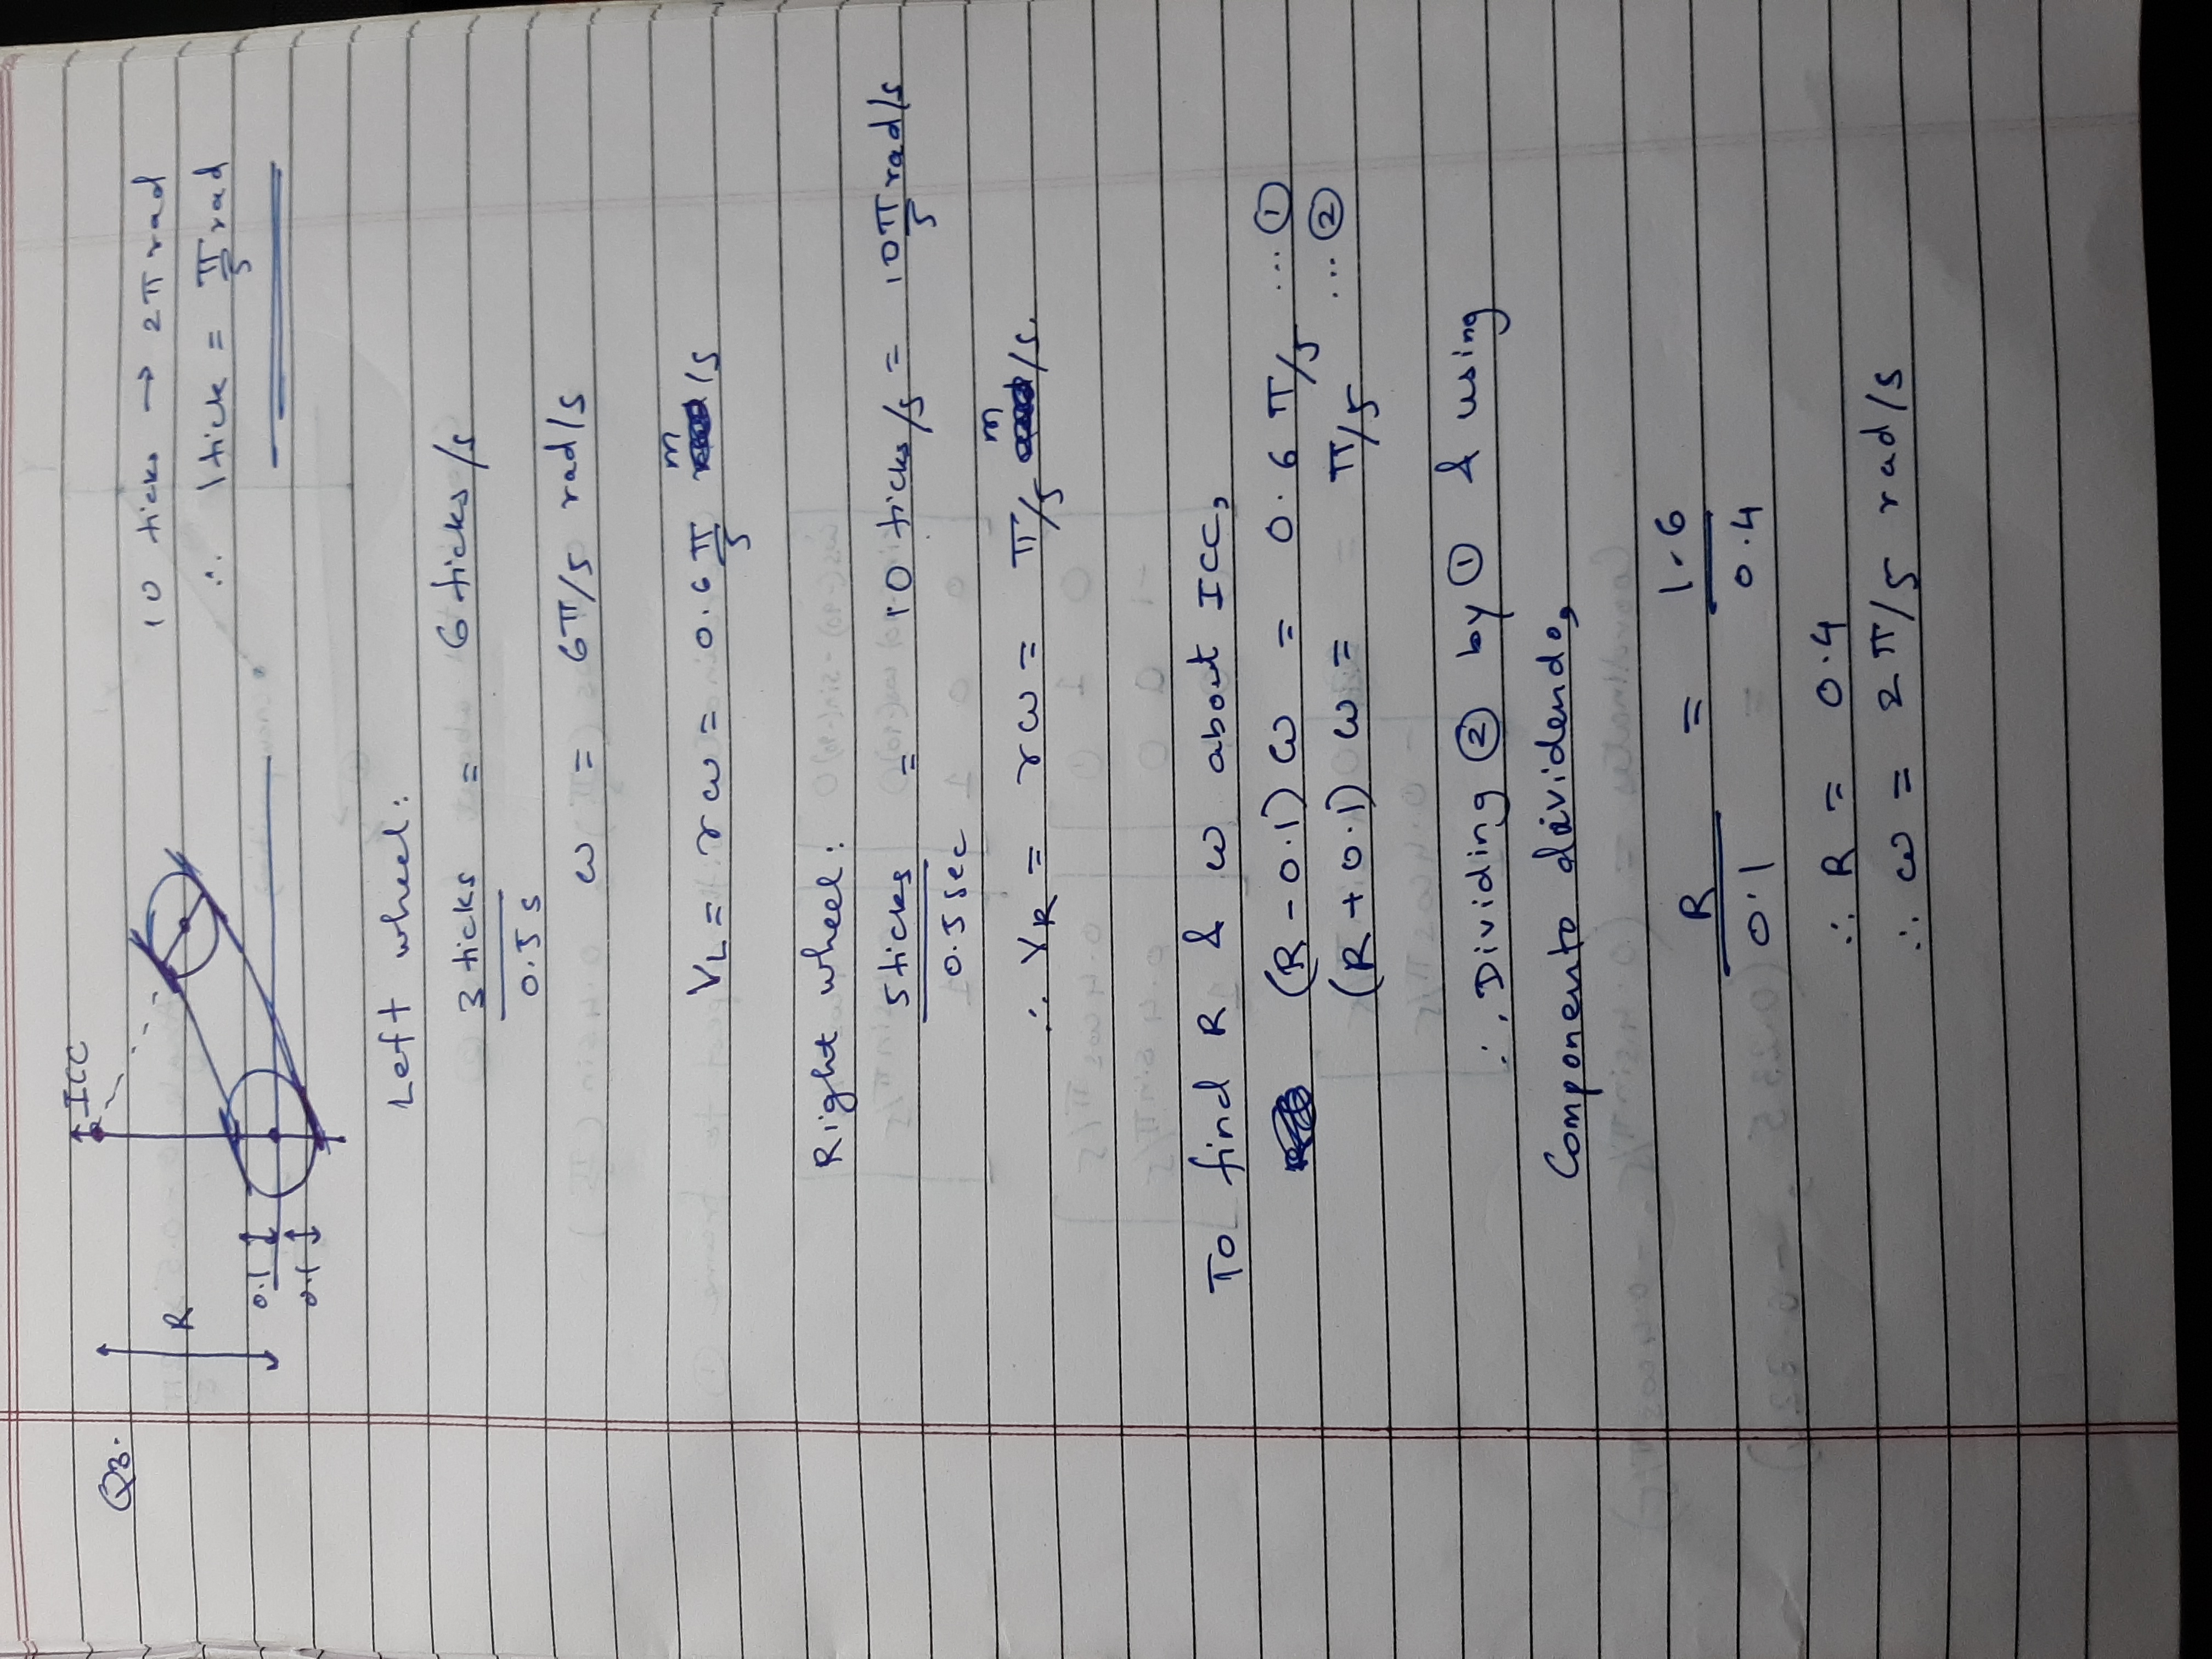 Q3.
ICC
R
0.1
0.1
10 ticks → 2π rad
∴ 1 tick = π/5 rad
Left wheel:
3 ticks / 0.5 s = 6 ticks/s
ω = 6π/5 rad/s
VL = rω = 0.6 π/5 m/s
Right wheel:
5 ticks / 0.5 sec = 10 ticks/s = 10π/5 rad/s
∴ VR = rω = π/5 m/s.
To find R & ω about ICC,
(R - 0.1) ω = 0.6 π/5 ... ①
(R + 0.1) ω = π/5 ... ②
∴ Dividing ② by ① & using
Componento dividendo,
R / 0.1 = 1.6 / 0.4
∴ R = 0.4
∴ ω = 2π/5 rad/s